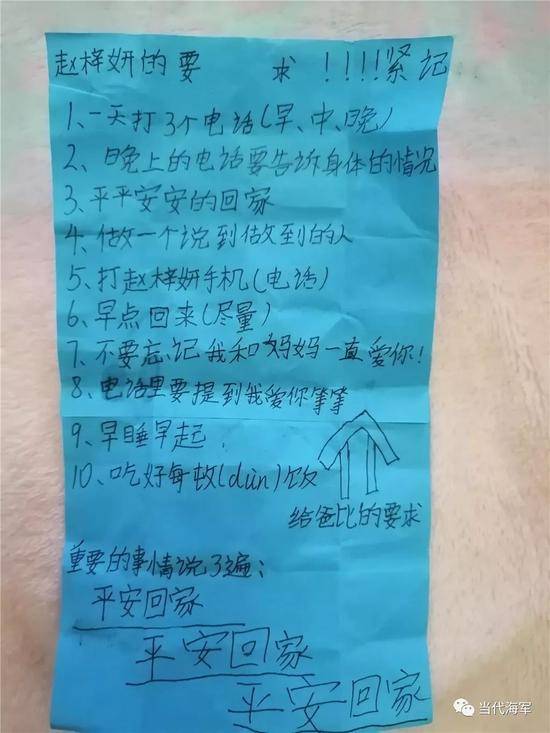 赵梓妍的要 求!!!!紧记
1、一天打3个电话(早、中、晚)
2、晚上的电话要告诉身体的情况
3、平平安安的回家
4、做一个说到做到的人
5、打赵梓妍手机(电话)
6、早点回来(尽量)
7、不要忘记我和妈妈一直爱你!
8、电话里要提到我爱你等等
9、早睡早起.
10、吃好每顿(dùn)饭
给爸比的要求
重要的事情说了遍:
平安回家
平安回家
平安回家
当代海军